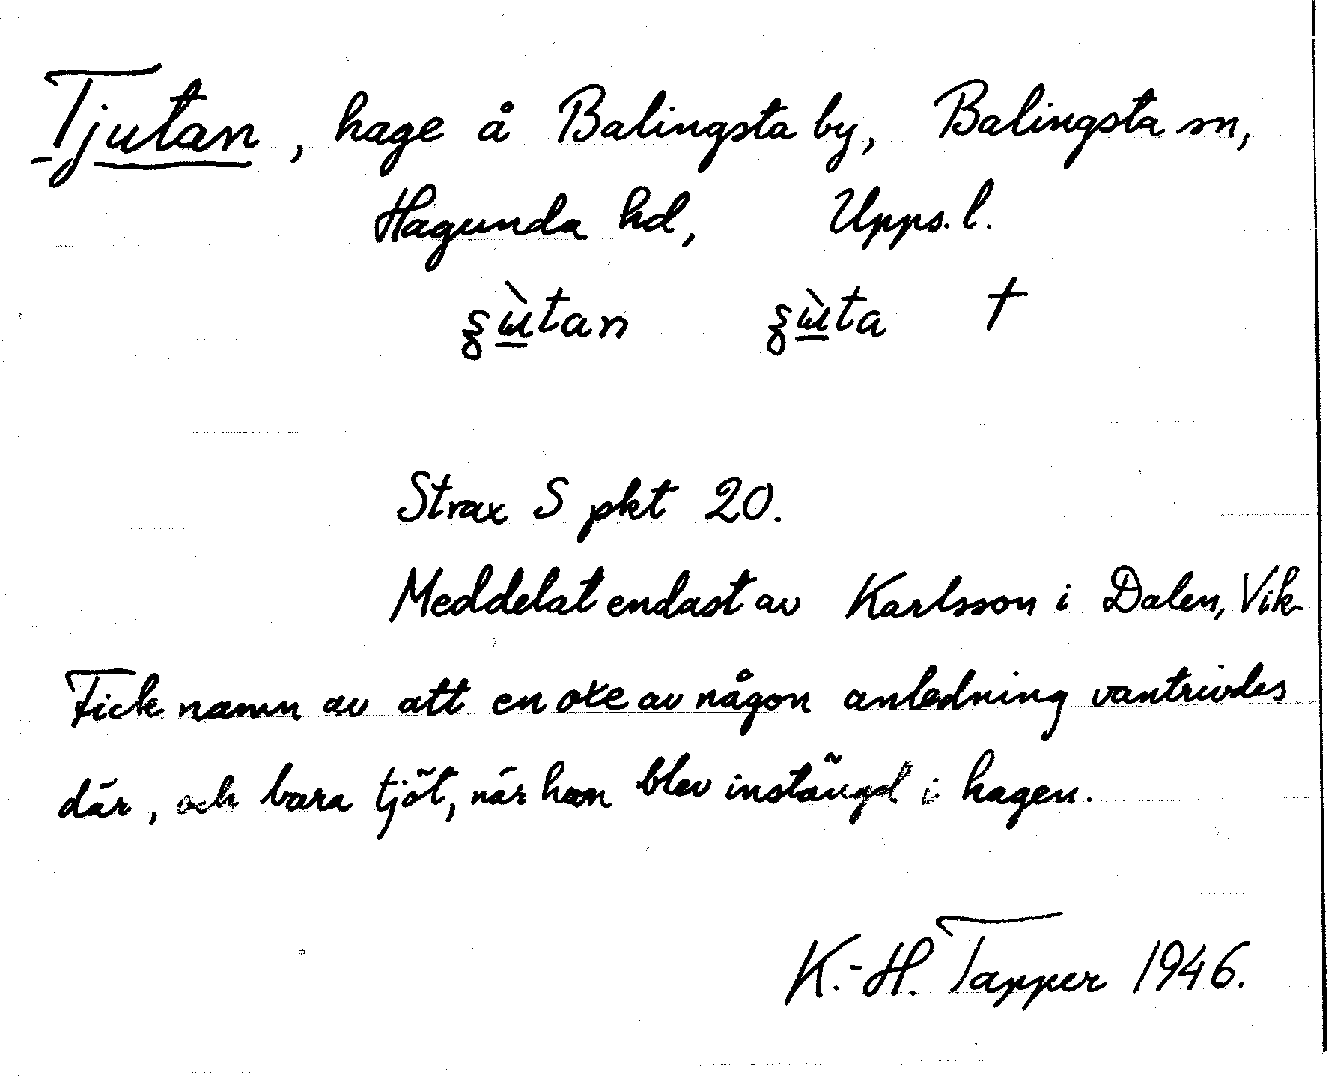 Tjutan, hage å Balingsta by, Balingsta sn,
Hagunda hd, Upps. l.
Strax S pkt 20.
Meddelat endast av Karlsson i Dalen, Vik
Fick namn av att en oxe av någon anledning vantrivdes
där, och bara tjöt, när han blev instängd i hagen.
K.-H. Tapper 1946.